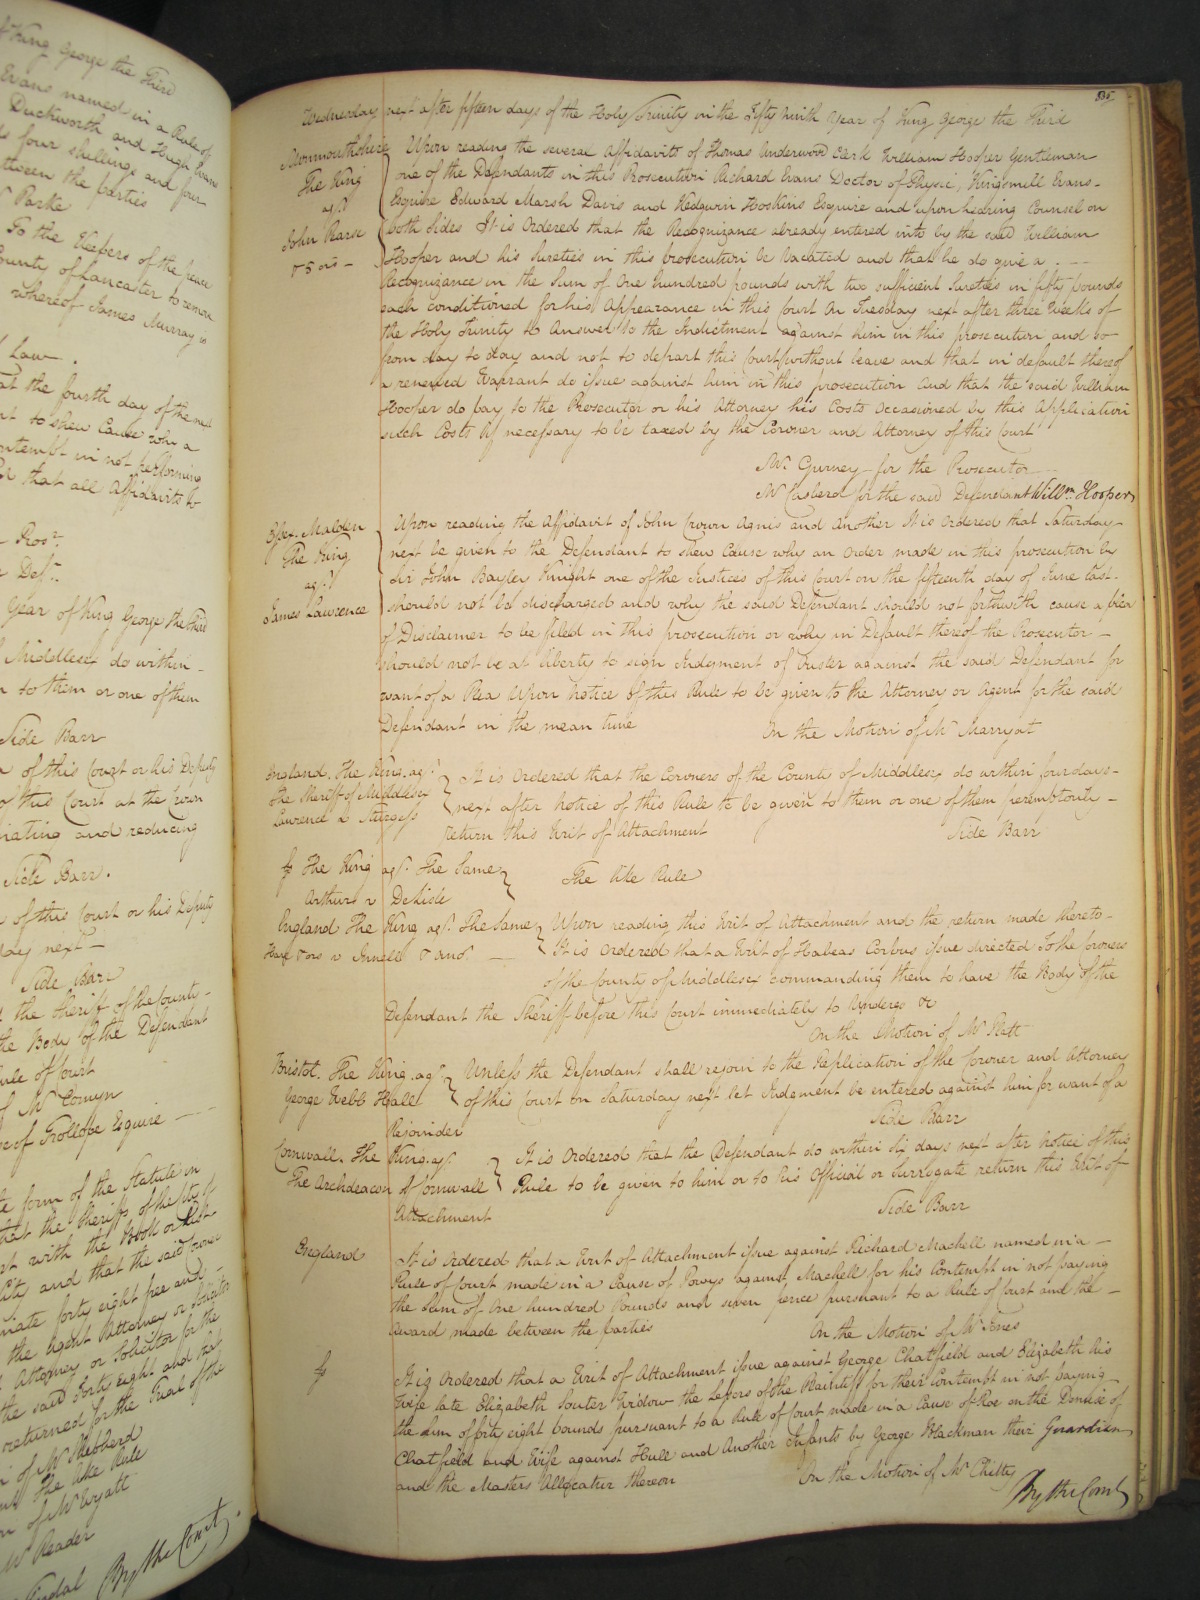 of King George the Third
Evans named in a Rule of
Duckworth and Hugh Evans
four shillings and four
between the parties
Parke
To the Keepers of the peace
County of Lancaster to remove
whereof James Murray is
Law
at the fourth day of the next
to shew Cause why a
Contempt in not performing
that all Affidavits to
Prosr.
Deft.
Year of King George the Third
Middlesex do within
to them or one of them
Side Barr
of this Court or his Deputy
of this Court at the Crown
and reducing
Side Barr.
of this Court or his Deputy
day next
Side Barr
the Sheriff of the County
the Body of the Defendant
Rule of Court
Mr Comyn
of Trollope Esquire
form of the Statute in
that the Sheriffs of the City of
with the Book or List
City and that the said Coroner
forty eight free and
the Agent Attorney or Solicitor
Attorney or Solicitor for the
the said Forty eight and
returned for the Trial of the
of Mr Shepherd
The like Rule
of Mr Wyatt
Mr Reader
Tindal By the Court.
Wednesday next after fifteen days of the Holy Trinity in the Fifty ninth Year of King George the Third
Monmouthshire Upon reading the several Affidavits of Thomas Underwood Clerk William Hooper Gentleman
The King one of the Defendants in this Prosecution Richard Evans Doctor of Physic, Kingsmill Evans
agt. Esquire Edward Marsh Davis and Kedgwin Hoskins Esquire and upon hearing Counsel on
John Pearse both Sides It is Ordered that the Recognizance already entered into by the said William
& 5 ors Hooper and his Sureties in this prosecution be vacated and that he do give a
Recognizance in the Sum of One hundred pounds with two sufficient Sureties in fifty pounds
each conditioned for his Appearance in this Court on Tuesday next after three Weeks of
the Holy Trinity to Answer to the Indictment against him in this prosecution and so
from day to day and not to depart this Court without leave and that in default thereof
a renewed Warrant do issue against him in this prosecution And that the said William
Hooper do pay to the Prosecutor or his Attorney his Costs occasioned by this Application
such Costs if necessary to be taxed by the Coroner and Attorney of this Court
Mr. Gurney for the Prosecutor
Mr Casberd for the said Defendant Willm. Hooper
Essex. Malden Upon reading the Affidavit of John Crown Agnis and Another It is Ordered that Saturday
The King next be given to the Defendant to shew Cause why an Order made in this prosecution by
agt. Sir John Bayley Knight one of the Justices of this Court on the fifteenth day of June last
James Lawrence should not be discharged and why the said Defendant should not forthwith cause a plea
of Disclaimer to be filed in this prosecution or why in Default thereof the Prosecutor
should not be at liberty to sign Judgment of Ouster against the said Defendant for
want of a Plea Upon Notice of this Rule to be given to the Attorney or Agent for the said
Defendant in the mean time On the Motion of Mr Marryat
England. The King agt. It is Ordered that the Coroners of the County of Middlesex do within four days
The Sheriff of Middlesex next after notice of this Rule to be given to them or one of them peremptorily
Lawrence v Sturgess return this Writ of Attachment Side Barr
The King agt. The Same The like Rule
Arthur v Delisle
England The King agt. The Same Upon reading this Writ of Attachment and the return made thereto
& ors v & anor. It is Ordered that a Writ of Habeas Corpus issue directed To the Coroners
of the County of Middlesex commanding them to have the Body of the
Defendant the Sheriff before this Court immediately to Undergo &c
On the Motion of Mr Platt
Bristol. The King agt. Unless the Defendant shall rejoin to the Replication of the Coroner and Attorney
George Webb Hall of this Court on Saturday next let Judgment be entered against him for want of a
Rejoinder Side Barr
Cornwall. The King agt. It is Ordered that the Defendant do within Six days next after notice of this
The Archdeacon of Cornwall Rule to be given to him or to his Official or Surrogate return this Writ of
Attachment Side Barr
England It is Ordered that a Writ of Attachment issue against Richard Machell named in a
Rule of Court made in a Cause of Powys against Machell for his Contempt in not paying
the Sum of One hundred Pounds and seven pence pursuant to a Rule of Court and the
Award made between the parties On the Motion of Mr Jones
It is Ordered that a Writ of Attachment issue against George Chatfield and Elizabeth his
Wife late Elizabeth Souter Widow the Lessors of the Plaintiff for their Contempt in not paying
the Sum of forty eight pounds pursuant to a Rule of Court made in a Cause of Roe on the Demise of
Chatfield and Wife against Hull and Another Infants by George Blackman their Guardian
and the Masters Allocatur thereon On the Motion of Mr Chitty
By the Court